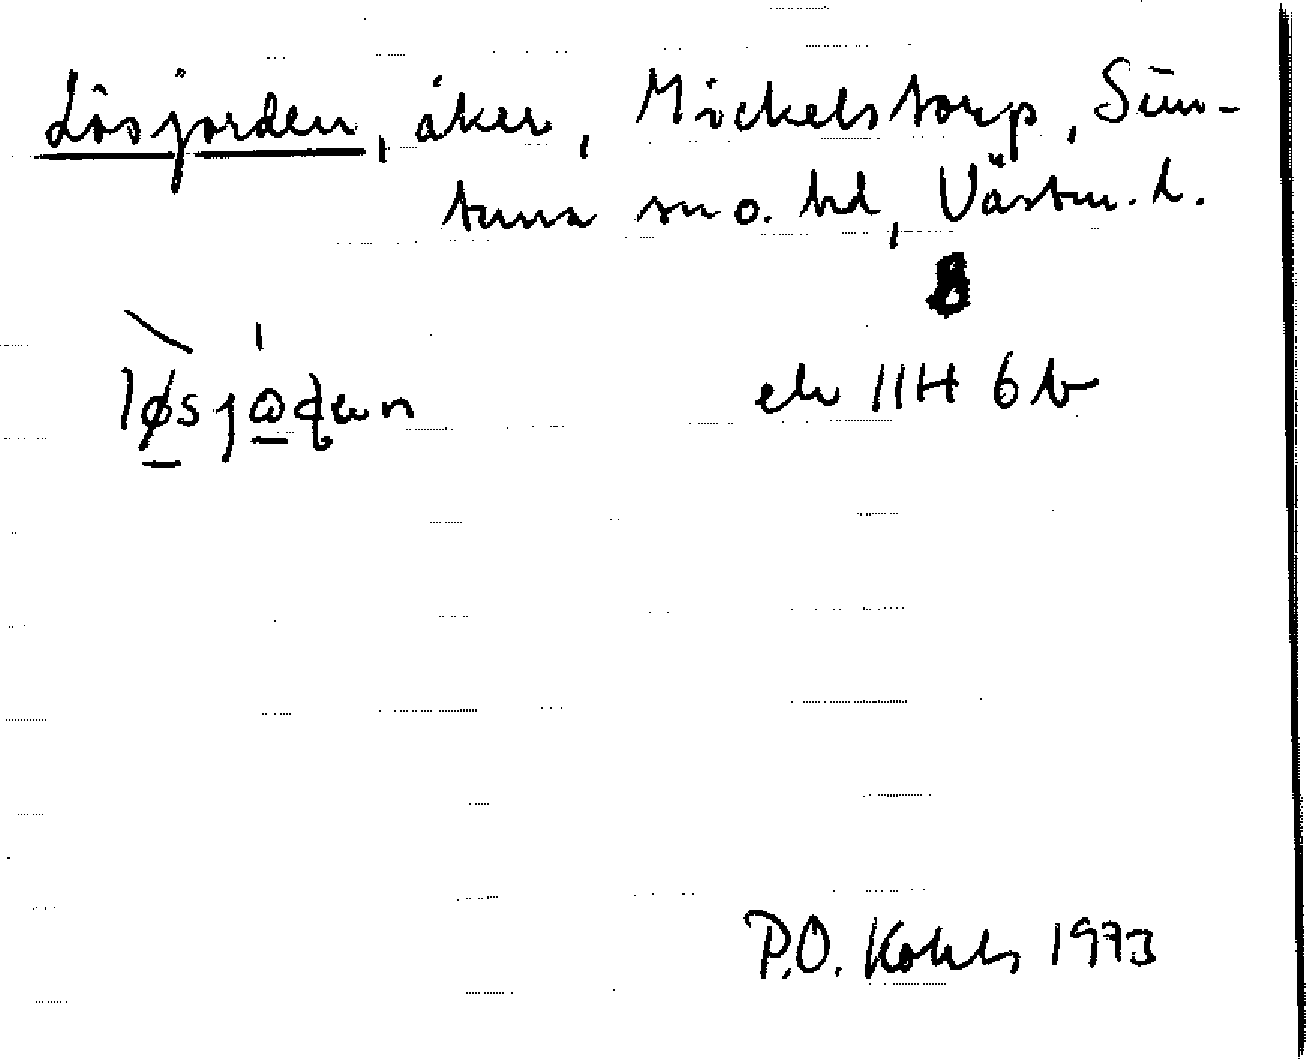 Lösjorden, åker, Mickelstorp, Sim-
tuna sn o. hd, Västm. l.
B
ek 11H 6b
P.O. Kohls 1973